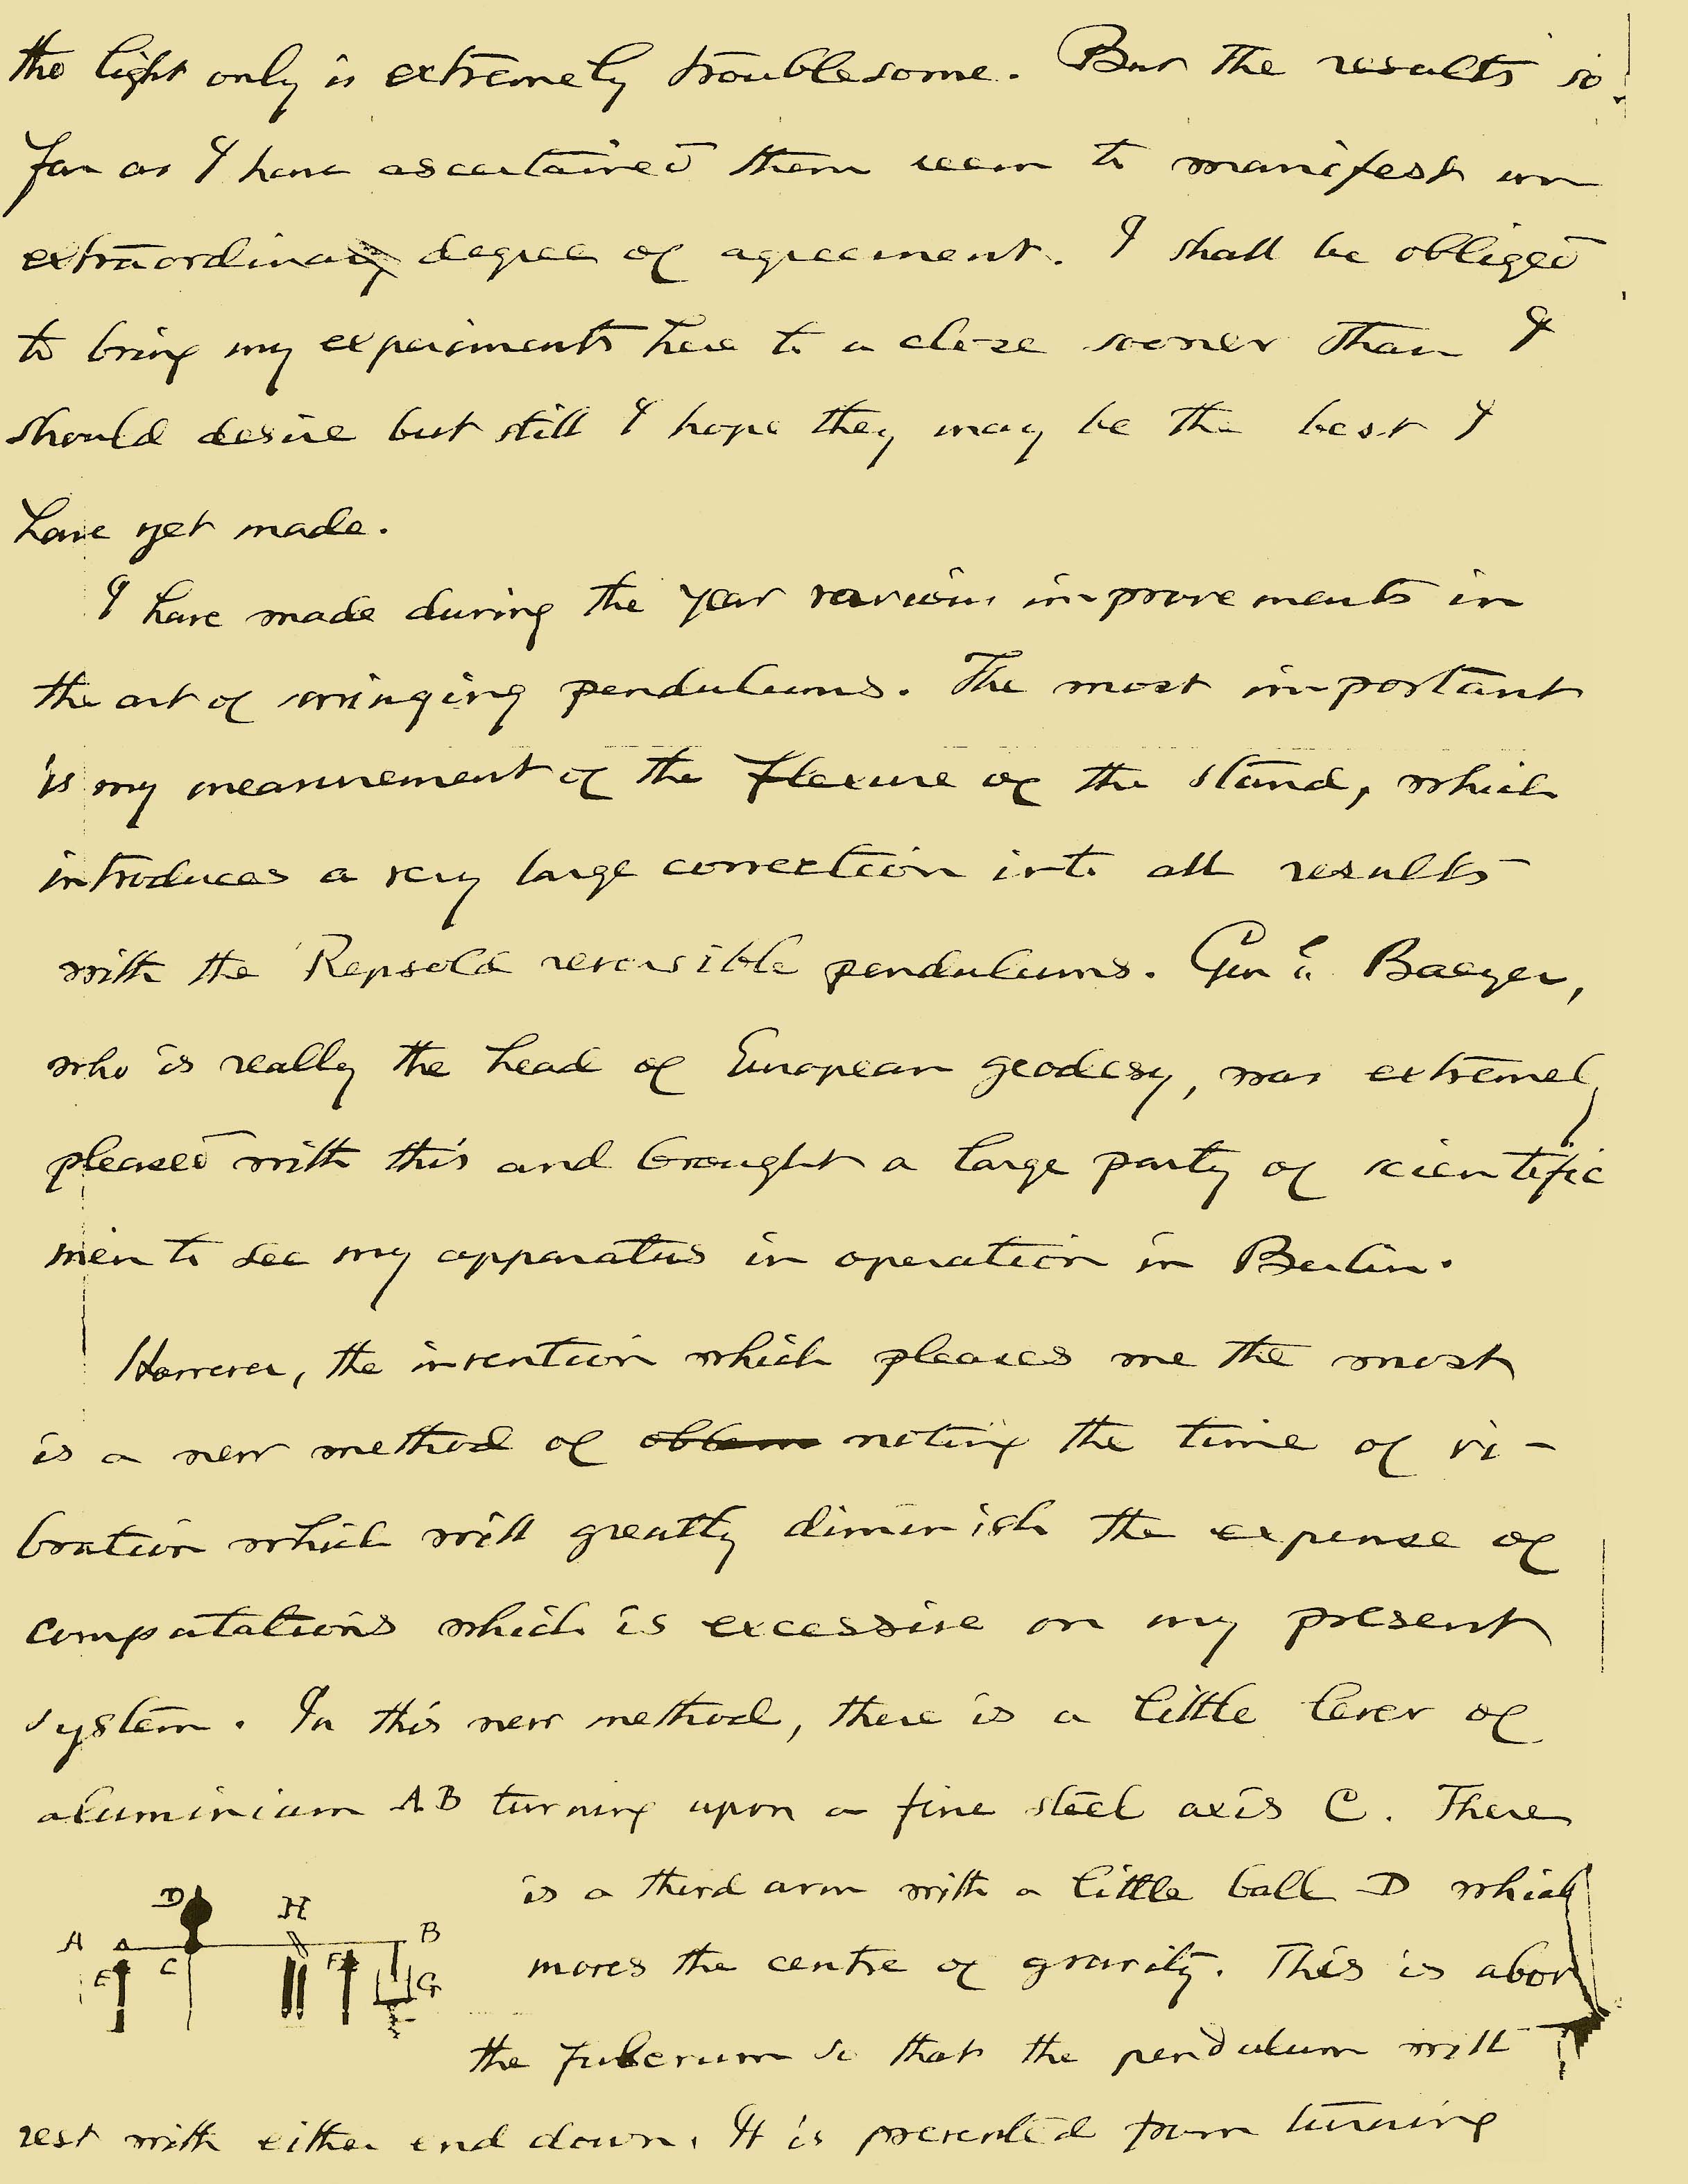 the light only is extremely troublesome. But the results so
far as I have ascertained them seem to manifest an
extraordinary degree of agreement. I shall be obliged
to bring my experiments here to a close sooner than I
should desire but still I hope they may be the best I
have yet made.
I have made during the year various improvements in
the art of swinging pendulums. The most important
is my measurement of the flexure of the stand, which
introduces a very large correction into all results
with the Repsold reversible pendulums. Gen'l. Baeyer,
who is really the head of European geodesy, was extremely
pleased with this and brought a large party of scientific
men to see my apparatus in operation in Berlin.
However, the invention which pleases me the most
is a new method of noting the time of vi-
bration which will greatly diminish the expense of
computations which is excessive on my present
system. In this new method, there is a little lever of
aluminium AB turning upon a fine steel axis C. There
is a third arm with a little ball D which
moves the centre of gravity. This is abov
the fulcrum so that the pendulum will
rest with either end down. It is prevented from turning
D H
A B
E C F G